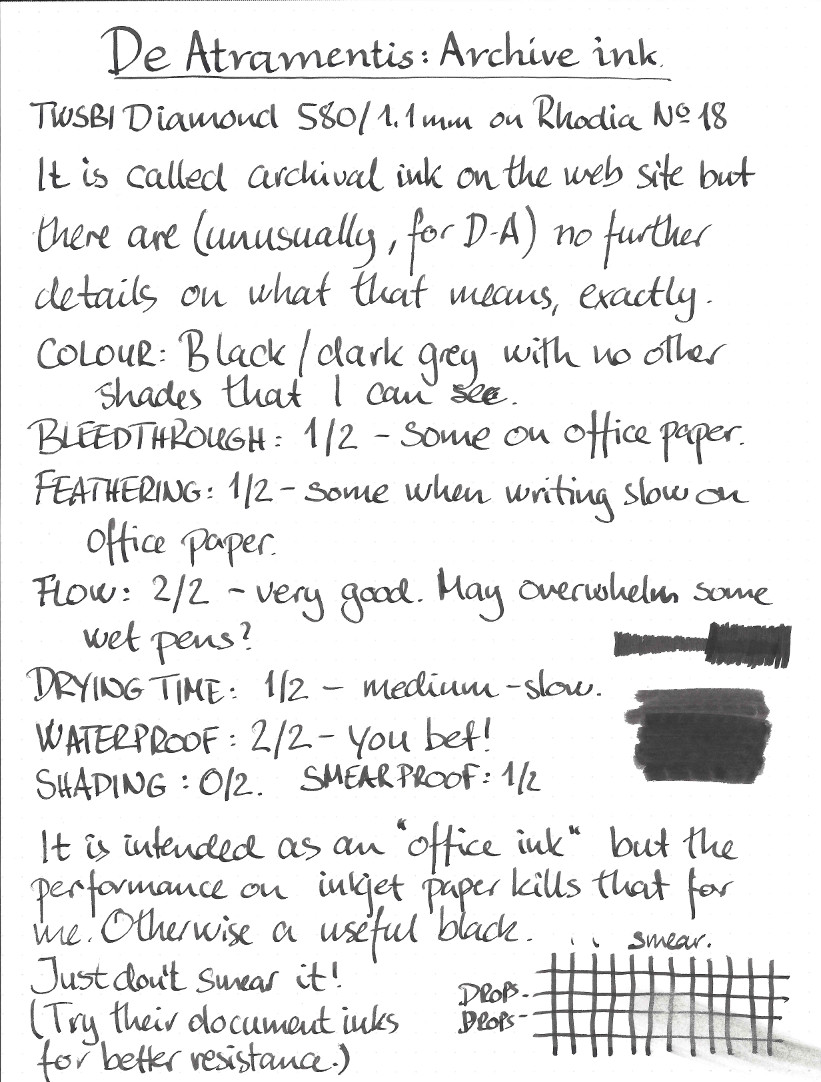 De Atramentis: Archive ink.
TWSBI Diamond 580/1.1mm on Rhodia Nº18
It is called archival ink on the web site but
there are (unusually, for D-A) no further
details on what that means, exactly.
COLOUR: Black/dark grey with no other
shades that I can see.
BLEEDTHROUGH: 1/2 - Some on office paper.
FEATHERING: 1/2 - some when writing slow on
office paper.
FLOW: 2/2 - very good. May overwhelm some
wet pens?
DRYING TIME: 1/2 - medium-slow.
WATERPROOF: 2/2 - You bet!
SHADING: 0/2. SMEARPROOF: 1/2
It is intended as an "office ink" but the
performance on inkjet paper kills that for
me. Otherwise a useful black.
smear.
Just don't smear it!
DROPS-
(Try their document inks
DROPS-
for better resistance.)